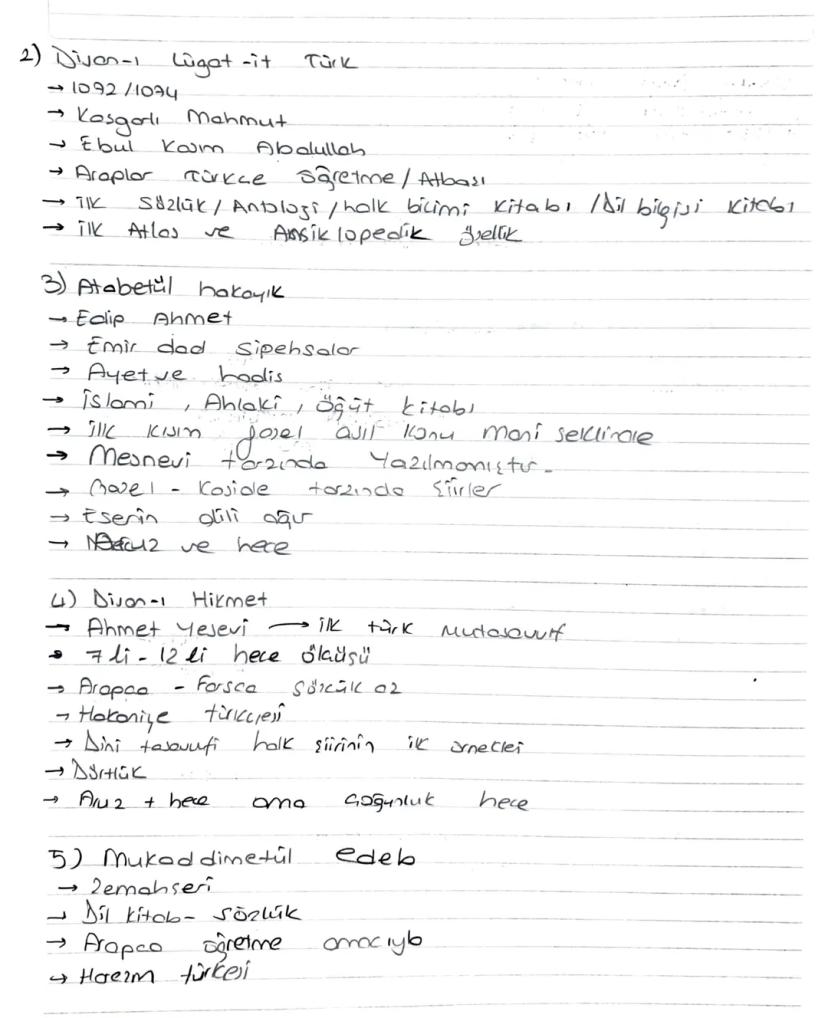 2) Divan-ı Lügat-it Türk
→ 1092/1094
→ Kaşgarlı Mahmut
→ Ebul Kasım Abdullah
→ Araplar Türkçe öğretme / Atbası
→ ilk sözlük / Antoloji / halk bilimi kitabı / Dil bilgisi kitabı
→ ilk Atlas ve Ansiklopedik özellik
3) Atabetül hakayık
→ Edip Ahmet
→ Emir dad sipehsalar
→ Ayet ve hadis
→ İslami, Ahlaki, öğüt kitabı
→ illk kısım gazel asıl konu mani seklinde
→ Mesnevi tarzında Yazılmamıştır.
→ Gazel - Kaside tarzında şiirler
→ Eserin dili ağır
→ Aruz ve hece
4) Divan-ı Hikmet
→ Ahmet Yesevi → ilk türk mutasavvıf
→ 7 li - 12 li hece ölçüsü
→ Arapça - Farsça sözcük az
→ Hakaniye türkçesi
→ Dini tasavvufi halk şiirinin ilk örnekleri
→ Dörtlük
→ Aruz + hece ama çoğunluk hece
5) Mukaddimetül edeb
→ Zemahseri
→ Dil kitab - sözlük
→ Arapça öğretme amacıyla
→ Harezm türkçesi